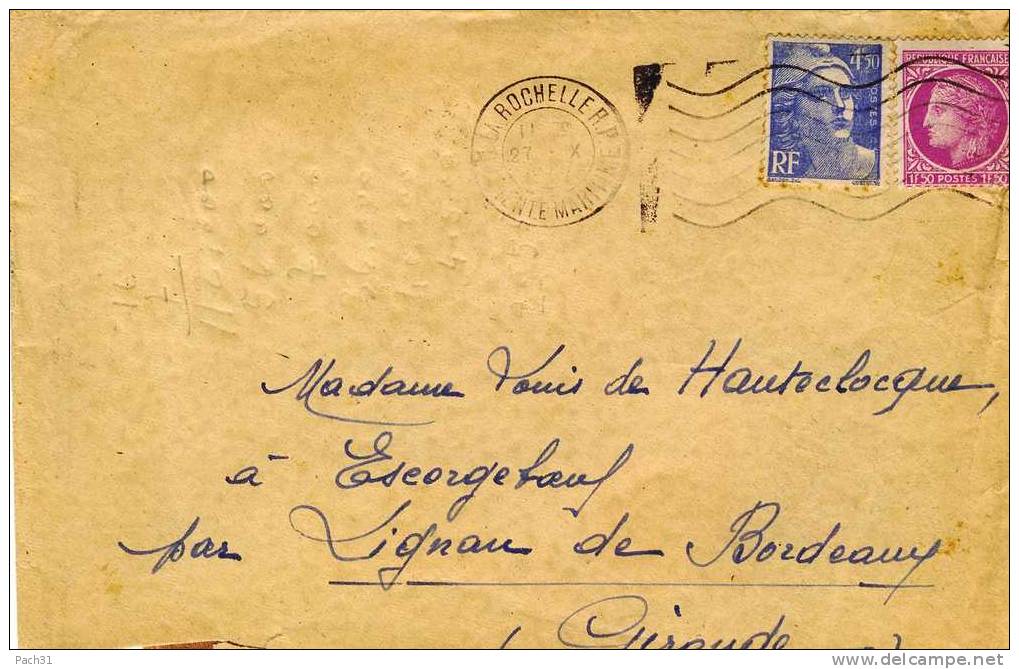 LA ROCHELLE R.P.
11
27 X
ENTE MARITIME
4,50
POSTES
RF
REPUBLIQUE FRANÇAISE
1F,50 POSTES 1F,50
Madame Louis de Hauteclocque,
à Escorgebœuf
par Lignan de Bordeaux
( Gironde )
Pach31
www.delcampe.net